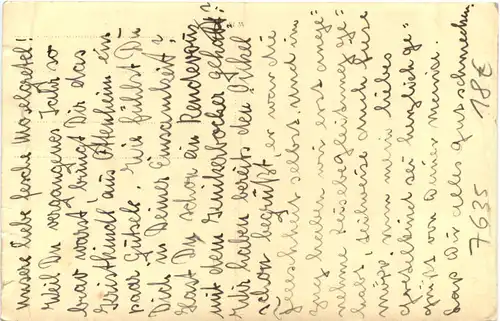 Unsere liebe fesche Moselgretel!
Weil Du vergangenes Jahr so
brav warst bringt Dir das
Christkindl aus Ottenheim ein
paar Gutzele. Wie fühlst Du
Dich in Deiner Einsamkeit?
Hast Du schon ein Rendezvous
mit dem Knickerbocker gehabt?
Wir haben bereits den Onkel
schon begrüßt er war die
Frechheit selbst und im
Zug haben wir erst ange-
nehme Reisebegleitung ge-
habt, teilweise auch
nun mein liebes
Gretelkind sei herzlich ge-
grüßt von Deiner Mimi.
Lass Dir alles gut schmecken.
18€
7635